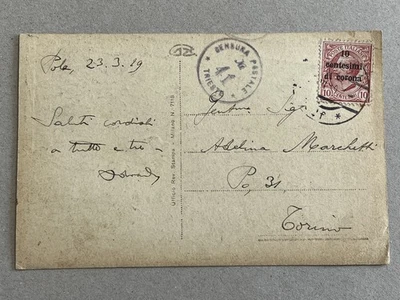 Pola 23.3.19
Saluti cordiali
a tutti e tre
CENSURA POSTALE
41
TRIESTE
POSTE ITALIANE
10
centesimi
di corona
10 10
Adelina Marchetti
Po, 31
Torino
Ufficio Rev. Stampa - Milano N.